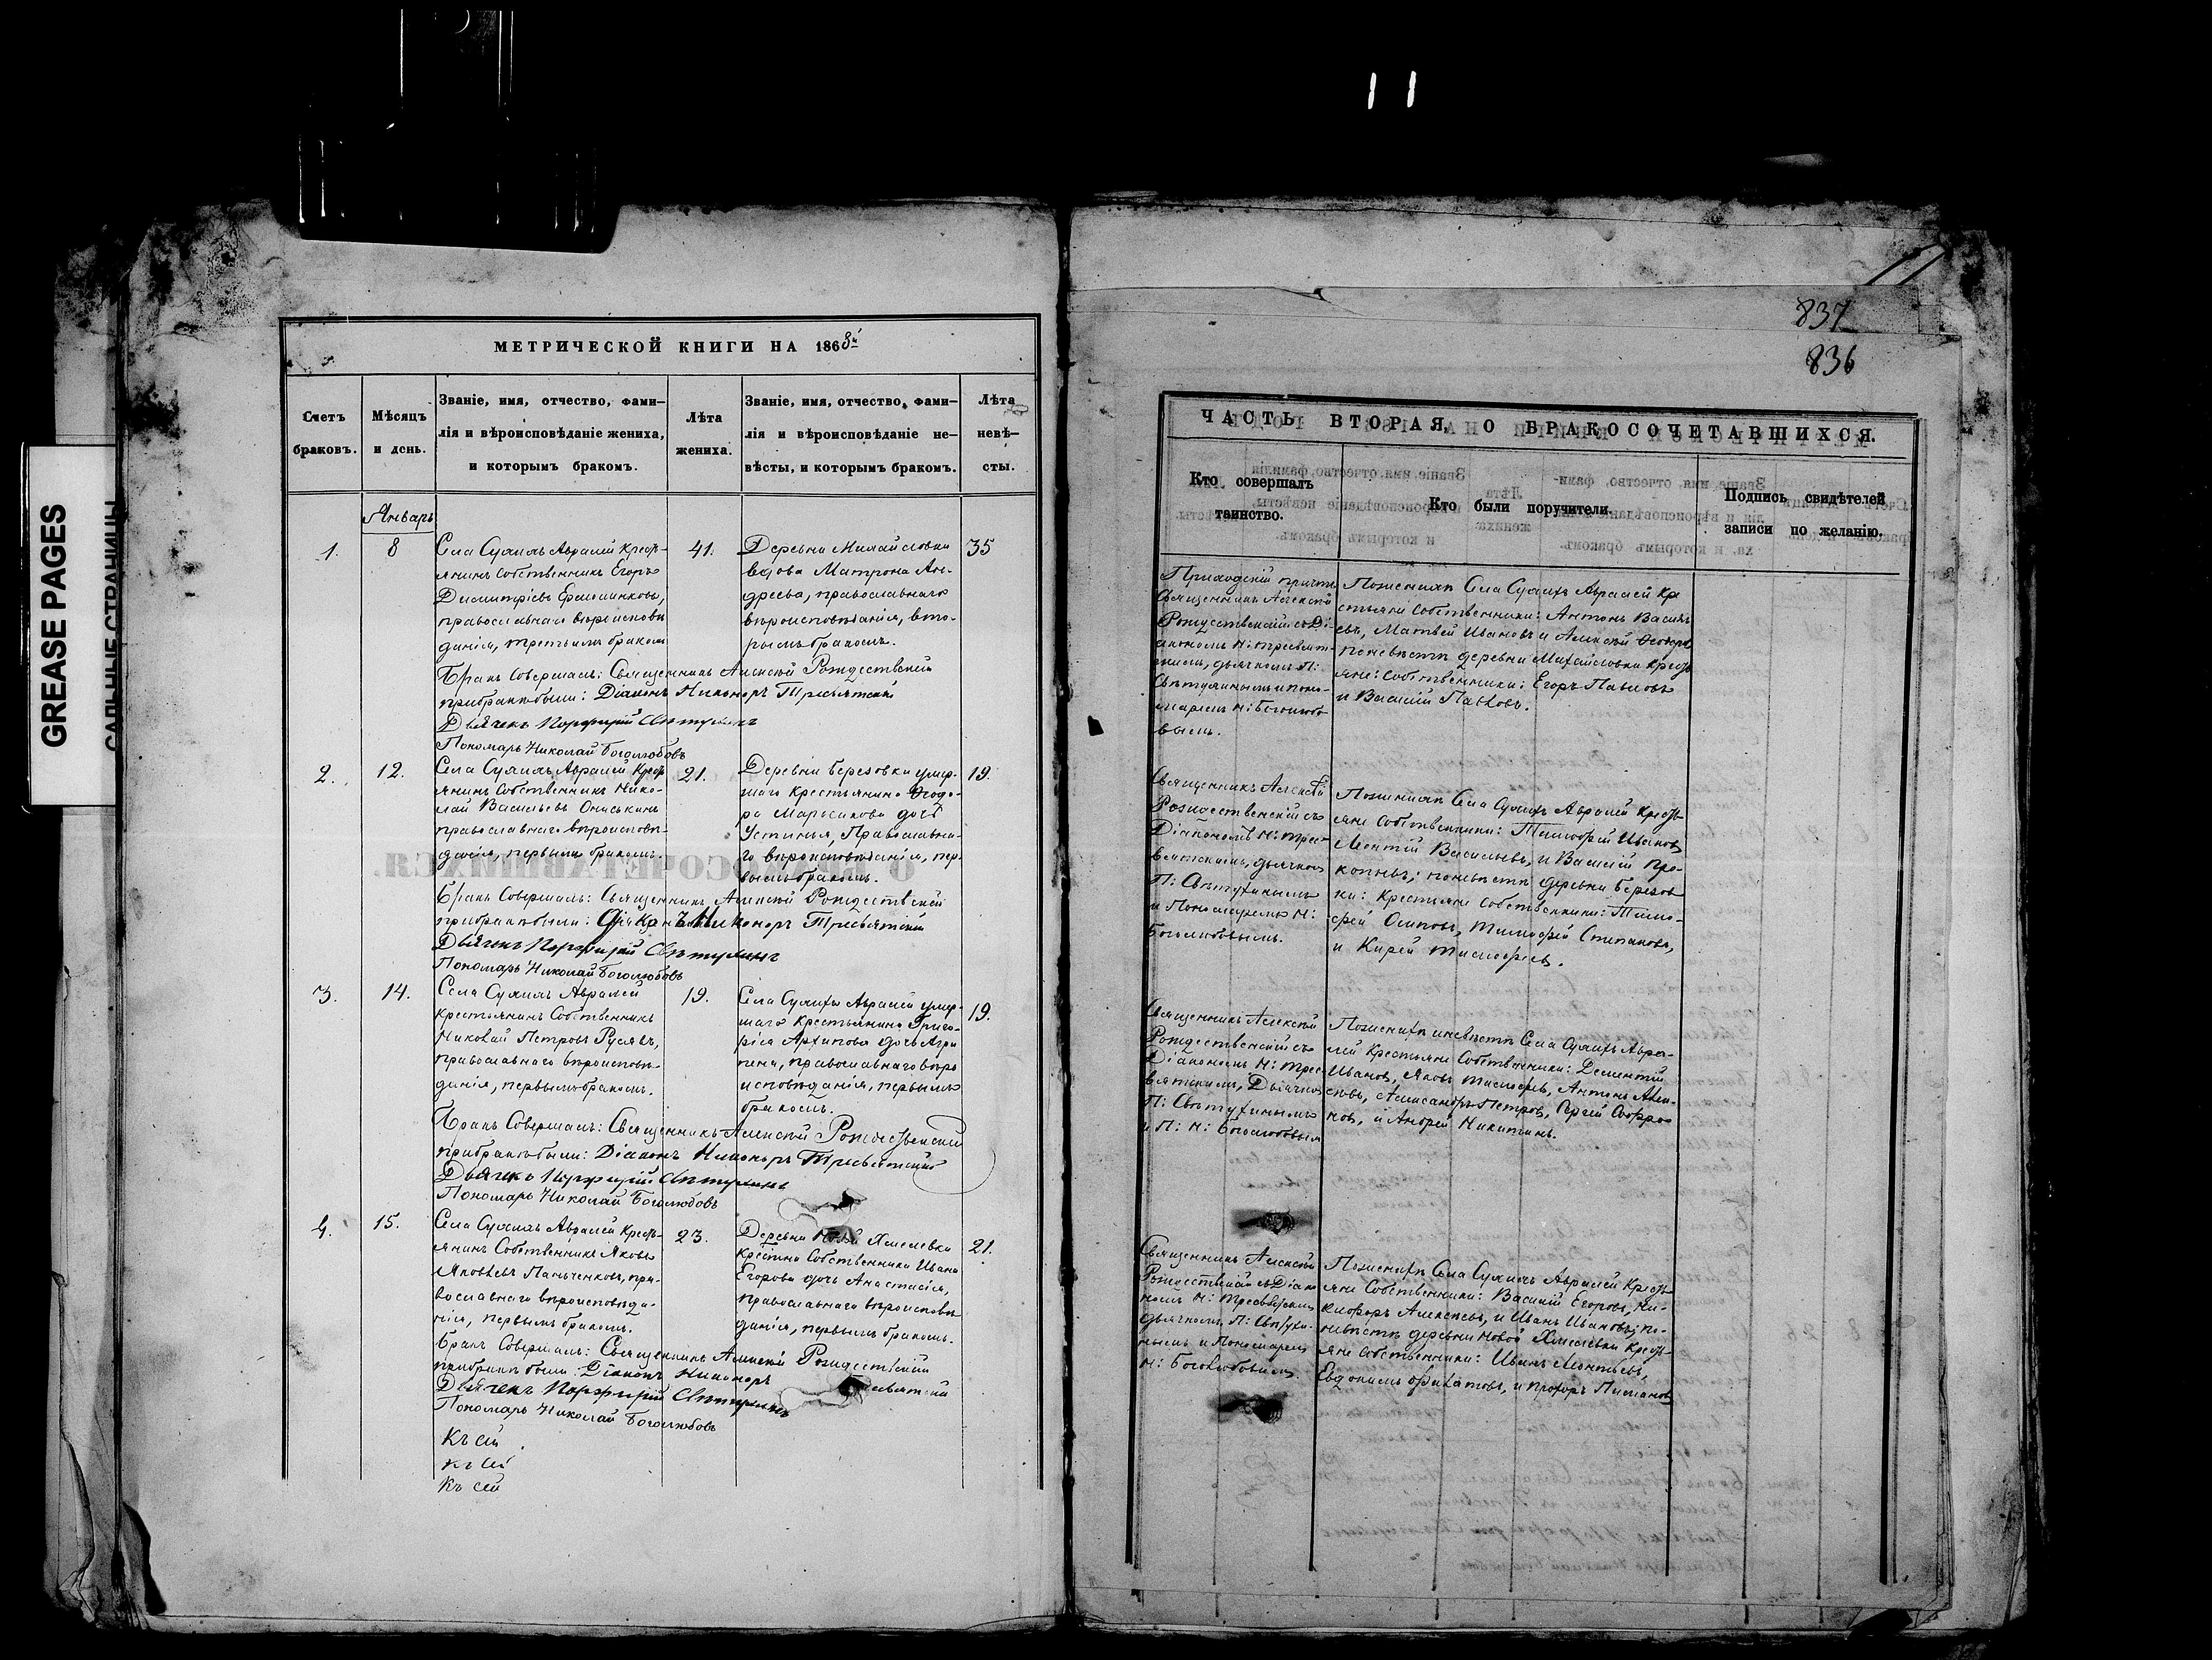 GREASE PAGES
САЛЬНЫЕ СТРАНИЦЫ
11
МЕТРИЧЕСКОЙ КНИГИ НА 1868й
Счетъ браковъ.
Мѣсяцъ и день.
Званіе, имя, отчество, фами-
лія и вѣроисповѣданіе жениха,
и которымъ бракомъ.
Лѣта жениха.
Званіе, имя, отчество, фами-
лія и вѣроисповѣданіе не-
вѣсты, и которымъ бракомъ.
Лѣта невѣ-
сты.
Январь
1.
8
Села Сухихъ Авралей крест-
янинъ собственникъ Егоръ
Димитріевъ
православнаго вѣроисповѣ
данія, третьимъ бракомъ
41.
Деревни Михайловки
вдова Матрона Ан-
дреева, православнаго
вѣроисповѣданія, вто-
рымъ бракомъ.
35
Бракъ Совершалъ: Священникъ Алексѣй Рождественскій
при бракѣ были: Діаконъ Никаноръ Тресвятскій
Дьячекъ Порфирій Свѣтухинъ
Пономарь Николай Боголюбовъ
2.
12.
Села Сухихъ Авралей Крест
янинъ Собственникъ Нико-
лай Васильевъ Ониськинъ
православнаго вѣроисповѣ-
данія, первымъ бракомъ.
21.
Деревни Березовки умер-
шаго крестьянина Ѳеодо-
ра дочь
Устинья, Православна-
го вѣроисповѣданія, пер-
вымъ бракомъ.
19.
Бракъ Совершалъ: Священникъ Алексѣй Рождественскій
при бракѣ были: Діаконъ Никаноръ Тресвятскій
Дьячекъ Порфирій Свѣтухинъ
Пономарь Николай Боголюбовъ
3.
14.
Села Сухихъ Авралей
крестьянинъ Собственникъ
Николай Петровъ Русяевъ,
православнаго вѣроисповѣ-
данія, первымъ бракомъ.
19.
Села Сухихъ Авралей умер-
шаго крестьянина Григо-
рія Архипова дочь Агри
пена, православнаго вѣро
исповѣданія, первымъ
бракомъ.
19.
Бракъ Совершалъ: Священникъ Алексѣй Рождественскій
при бракѣ были: Діаконъ Никаноръ Тресвятскій
Дьячекъ Порфирій Свѣтухинъ
Пономарь Николай Боголюбовъ
4.
15.
Села Сухихъ Авралей Крест-
янинъ Собственникъ Яковъ
Яковлевъ Панченковъ, пра-
вославнаго вѣроисповѣда-
нія, первымъ бракомъ.
23.
Деревни Новой Хмелевки
Собственника Ивана
Егорова дочь Анастасія,
православнаго вѣроисповѣ
данія, первымъ бракомъ.
21.
Бракъ Совершалъ: Священникъ Алексѣй Рождественскій
при бракѣ были: Діаконъ Никаноръ Тресвятскій
Дьячекъ Порфирій Свѣтухинъ
Пономарь Николай Боголюбовъ
Къ сей
Къ сей
Къ сей
11
837
836
ЧАСТЬ ВТОРАЯ, О БРАКОСОЧЕТАВШИХСЯ.
Кто совершалъ
таинство.
Кто были поручители.
Подпись свидѣтелей
записи по желанію.
Приходскій причтъ
Священникъ Алексѣй
Рождественскій съ Ді-
акономъ Н: Тресвят-
скимъ, дьячкомъ П:
Свѣтухинымъ и поно-
маремъ Н: Боголюбо
вымъ.
По женихѣ Села Сухихъ Авралей Кре
стьяне собственники: Антонъ Василь
евъ, Матвѣй Ивановъ и Алексѣй Ѳеодоровъ
по невѣстѣ деревни Михайловки крест
яне собственники: Егоръ Павловъ
и Василій Павловъ.
Священникъ Алексѣй
Рождественскій съ
Діакономъ Н: Трес-
вятскимъ, дьячкомъ
П: Свѣтухинымъ
и Пономаремъ Н:
Боголюбовымъ.
По женихѣ Села Сухихъ Авралей Крест
яне Собственники: Тимофей Ивановъ
Леонтій Васильевъ, и Василій Про-
копьевъ; по невѣстѣ деревни Березов
ки: Крестьяне Собственники: Тимо-
фей Осиповъ, Тимофей Степановъ,
и Кирей Тимофеевъ.
Священникъ Алексѣй
Рождественскій съ
Діакономъ Н: Трес-
вятскимъ, Дьячкомъ
П: Свѣтухинымъ
и П: Н: Боголюбовымъ
По женихѣ и невѣстѣ Села Сухихъ Авра-
лей Крестьяне Собственники: Дементій
Ивановъ, Яковъ Тимофеевъ, Антонъ Алек-
сѣевъ, Александръ Петровъ, Сергей Софро
новъ, и Андрей Никитинъ.
Священникъ Алексѣй
Рождественскій съ Діако
номъ Н: Тресвятскимъ
дьячкомъ П: Свѣтухи-
нымъ и Пономаремъ
Н: Боголюбовымъ.
По женихѣ Села Сухихъ Авралей Крест-
яне Собственники: Василій Егоровъ, Ни-
кифоръ Алексѣевъ, и Иванъ Ивановъ; по-
невѣстѣ деревни Новой Хмелевки Крест-
яне Собственники: Иванъ Леонтьевъ,
Евдокимъ Филатовъ, и Прохоръ Пимановъ